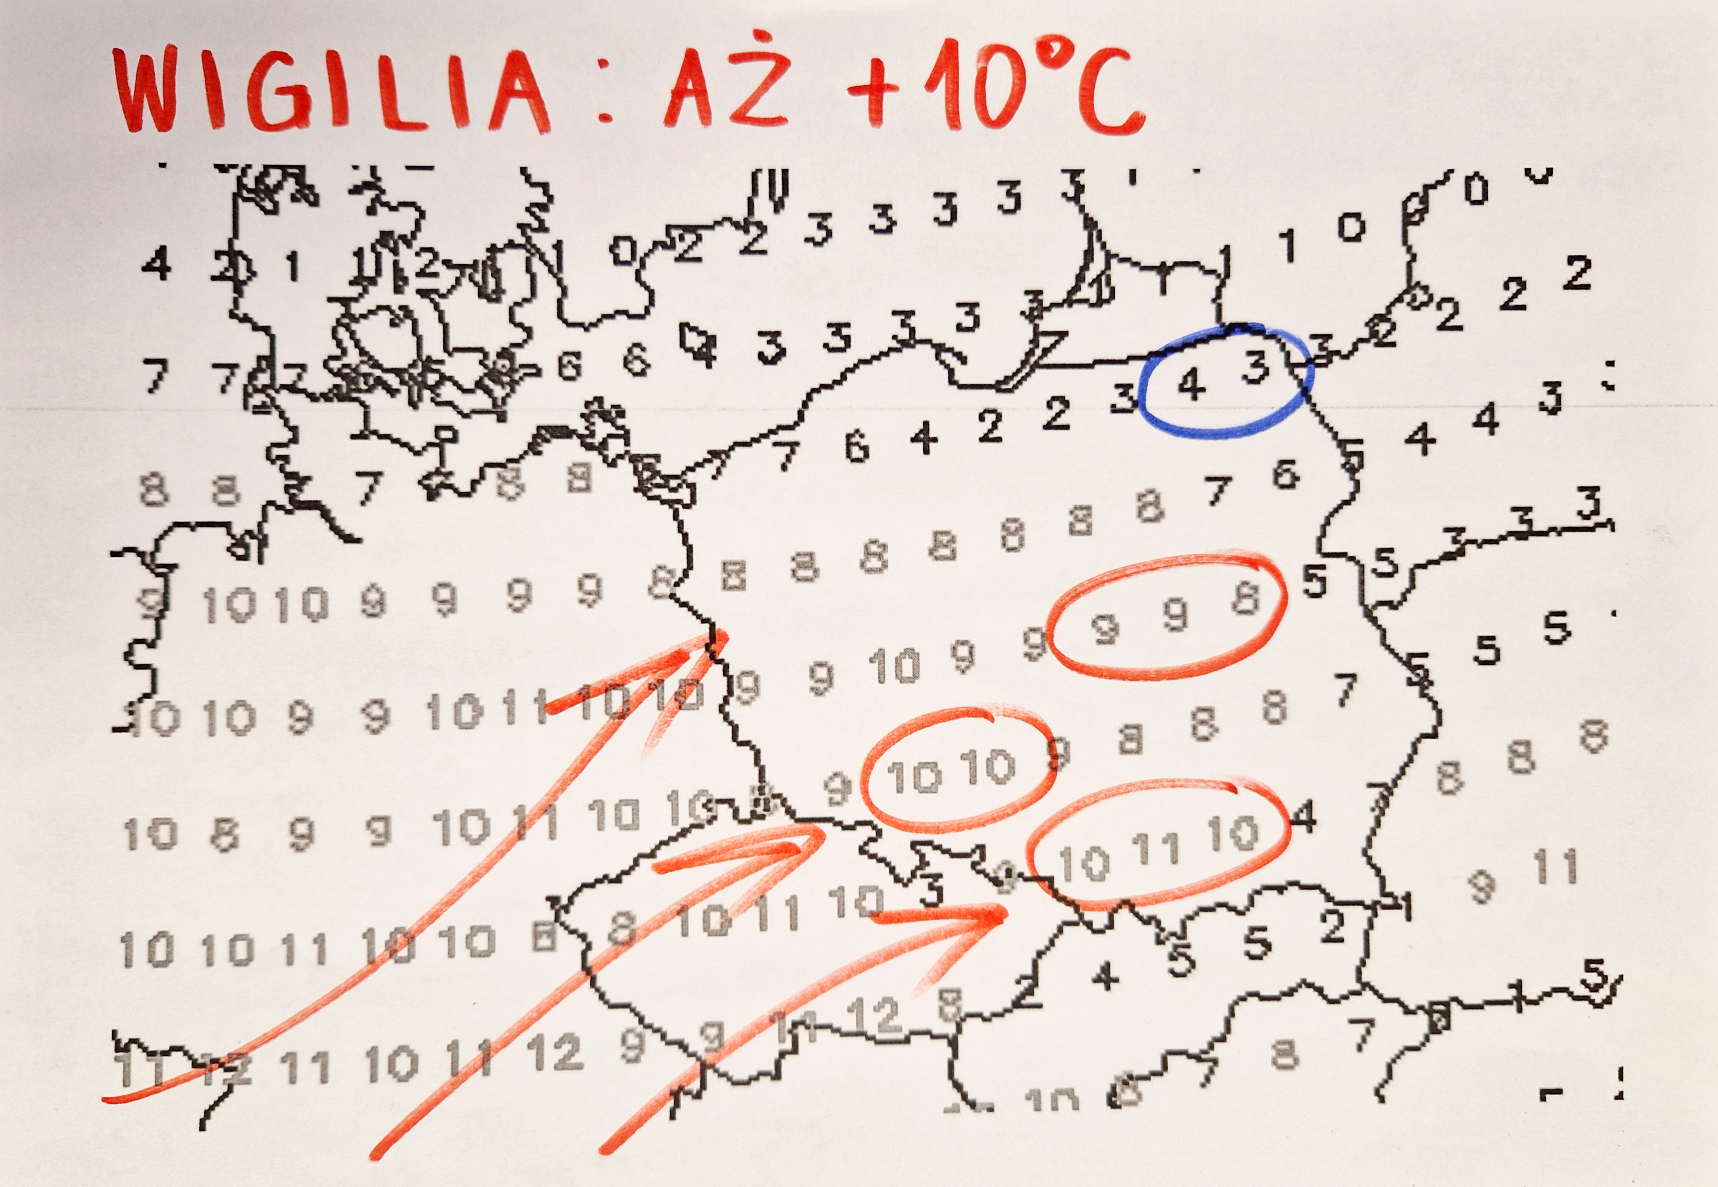 WIGILIA : AŻ +10°C
3 3 3 3 3 1 0 0
4 2 1 1 2 1 0 2 2 1 2 2 2
7 7 7 6 6 4 3 3 3 3 3 3 2
7 7 6 4 2 2 3 4 3 4 4 3
8 8 7 8 8 7 6 5
9 10 10 9 9 9 9 8 8 8 8 8 8 8 8 5 5 3 3 3
10 10 9 9 10 11 10 10 9 9 10 9 9 9 9 8 5 5 5
10 8 9 9 10 11 10 10 9 10 10 9 8 8 8 7 8 8 8
10 10 11 10 10 8 8 10 11 10 3 9 10 11 10 4 9 11
11 12 11 10 11 12 9 9 11 12 8 2 4 5 5 2 1
10 8 7 8 7 8 1 5